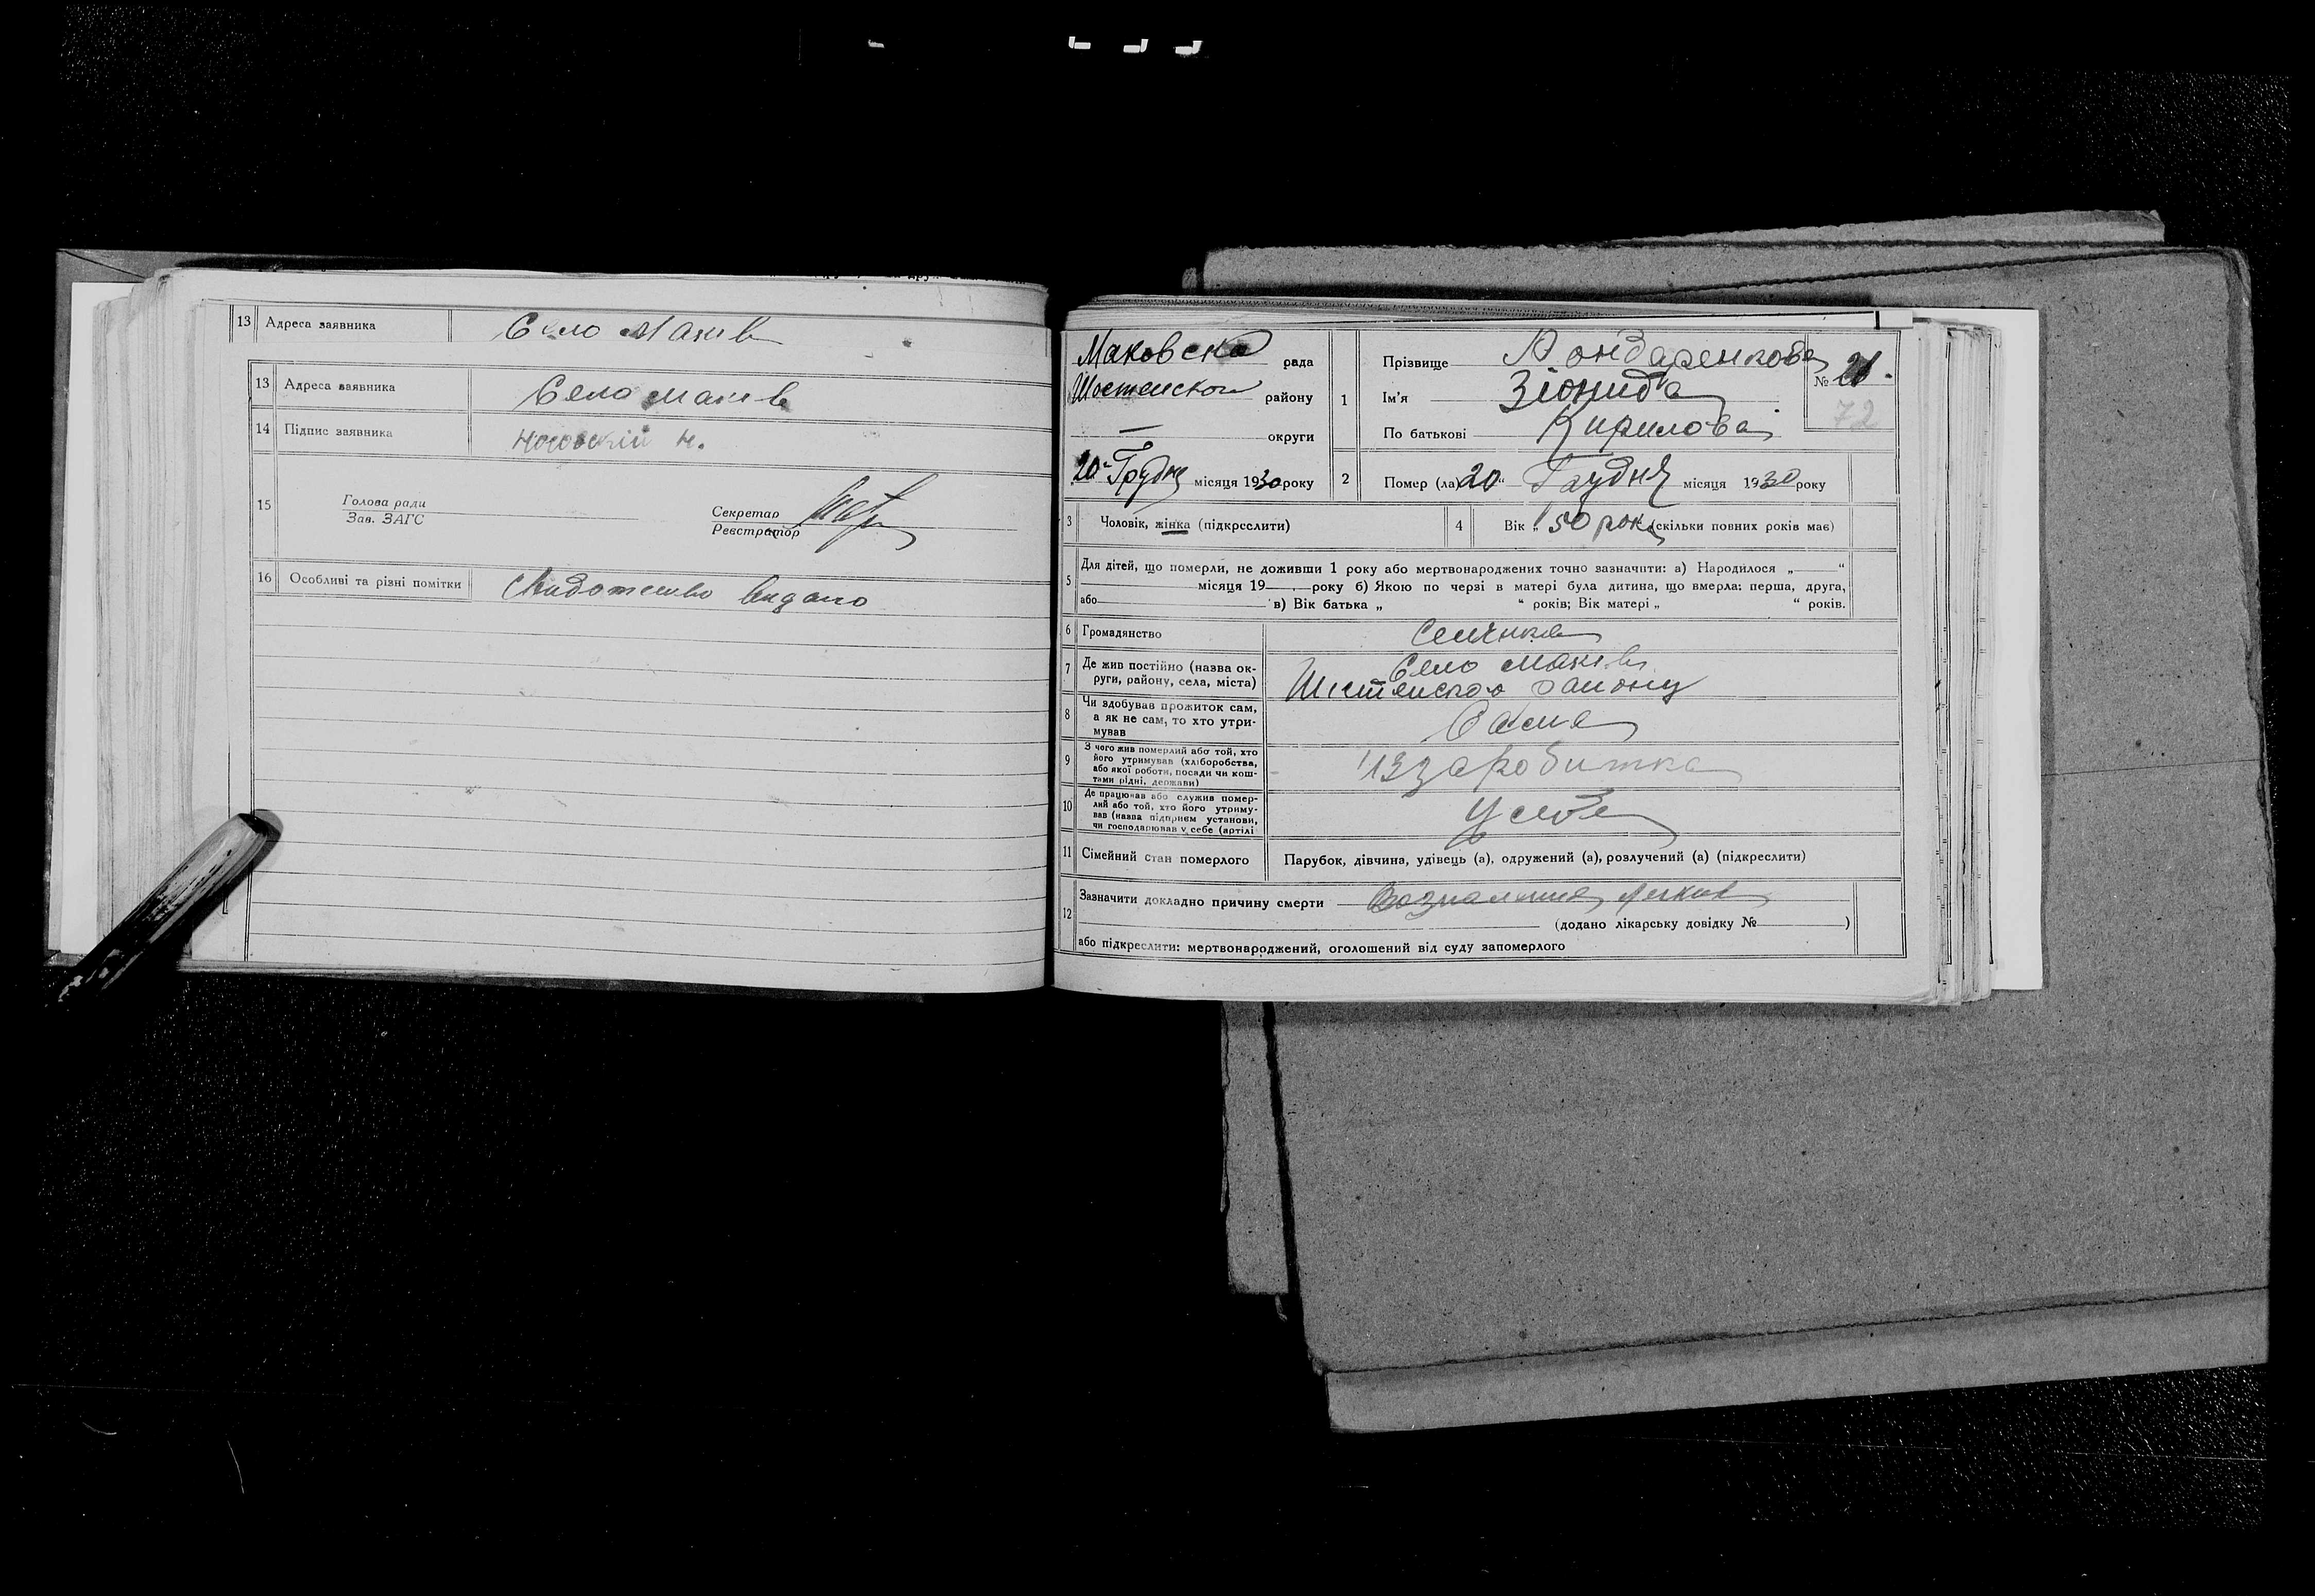 13 Адреса заявника Село Макїв
13 Адреса заявника Село Макїв
14 Підпис заявника Носовский Н.
15 Голова ради
Зав. ЗАГС
Секретар
Реєстратор
16 Особливі та різні помітки Видано
Маковска рада
району
— округи
20 Грудня місяця 1930 року
1 Прізвище
Ім'я Зіонида
По батькові Кирилова
№ 21.
72
2 Помер (ла) 20 “ Грудня місяця 1930 року
3 Чоловік, жінка (підкреслити)
4 Вік „ 50 рок (скільки повних років має)
5 Для дітей, що померли, не доживши 1 року або мертвонароджених точно зазначити: а) Народилося „ “
місяця 19 року б) Якою по черзі в матері була дитина, що вмерла: перша, друга,
або в) Вік батька „ “ років; Вік матері „ “ років.
6 Громадянство Селянка
7 Де жив постійно (назва ок-
руги, району, села, міста)
Село Макїв
району
8 Чи здобував прожиток сам,
а як не сам, то хто утри-
мував
Сама
9 З чего жив померлий або той, хто
його утримував (хліборобства,
або якої роботи, посади чи кош-
тами рідні, держави)
Из заробитка
10 Де працював або служив помер-
лий або той, хто його утриму-
вав (назва підприєм установи,
чи господарював у себе (артілі
У себе
11 Сімейний стан померлого Парубок, дівчина, удівець (а), одружений (а), розлучений (а) (підкреслити)
12 Зазначити докладно причину смерти
(додано лікарську довідку № )
або підкреслити: мертвонароджений, оголошений від суду запомерлого